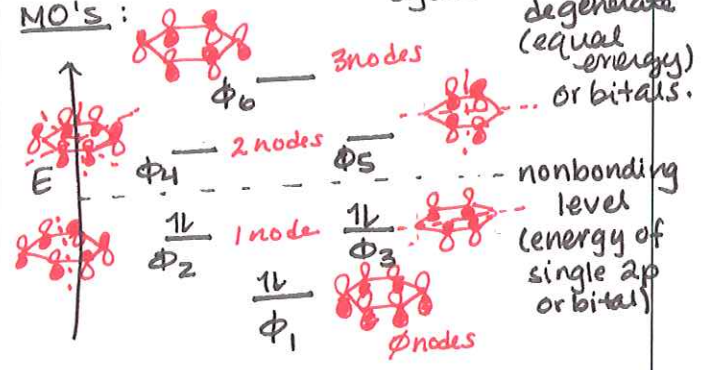 MO's:
degenerate
(equal
energy)
orbitals.
3 nodes
ϕ6
E
ϕ4
2 nodes
ϕ5
nonbonding
level
(energy of
single 2p
orbital)
1L
ϕ2
1 node
1L
ϕ3
1L
ϕ1
ø nodes